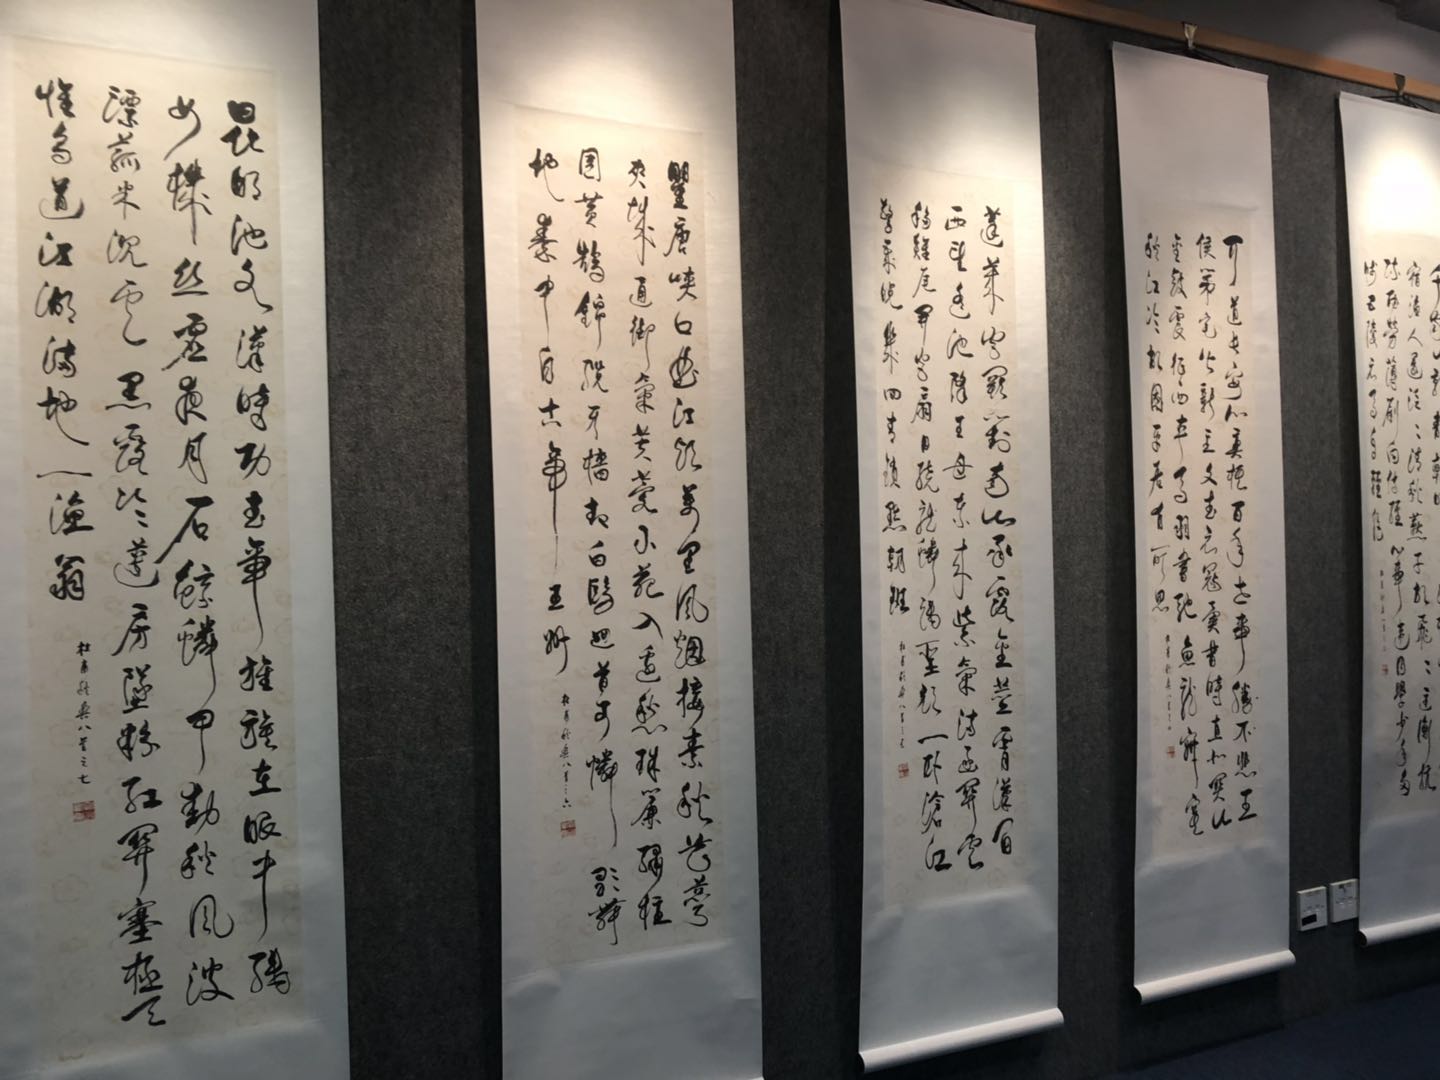 千家山郭靜朝暉
宿漁人還泛泛清秋燕子故飛飛匡衡抗
疏功薄劉向傳經心事違同學少年多
五陵衣馬自輕肥
聞道長安似弈棋百年世事勝不悲王
侯第宅皆新主文武衣冠異昔時直北關山
金鼓震征西車馬羽書馳魚龍寂寞
秋江冷故國平居有所思
杜甫秋興八首之四
蓬萊宮闕對南山承露金莖霄漢間
西望瑤池降王母東來紫氣滿函關雲
移雉尾開宮扇日繞龍鱗識聖顏一臥滄江
驚歲晚幾回青鎖點朝班
杜甫秋興八首之五
瞿唐峽口曲江頭萬里風煙接素秋花萼
夾城通御氣芙蓉小苑入邊愁珠簾繡柱
圍黃鵠錦纜牙檣起白鷗迴首可憐歌舞
地秦中自古帝王州
杜甫秋興八首之六
昆明池水漢時功武帝旌旗在眼中織
女機絲虛夜月石鯨鱗甲動秋風波
漂菰米沉雲黑露冷蓮房墜粉紅關塞極天
惟鳥道江湖滿地一漁翁
杜甫秋興八首之七